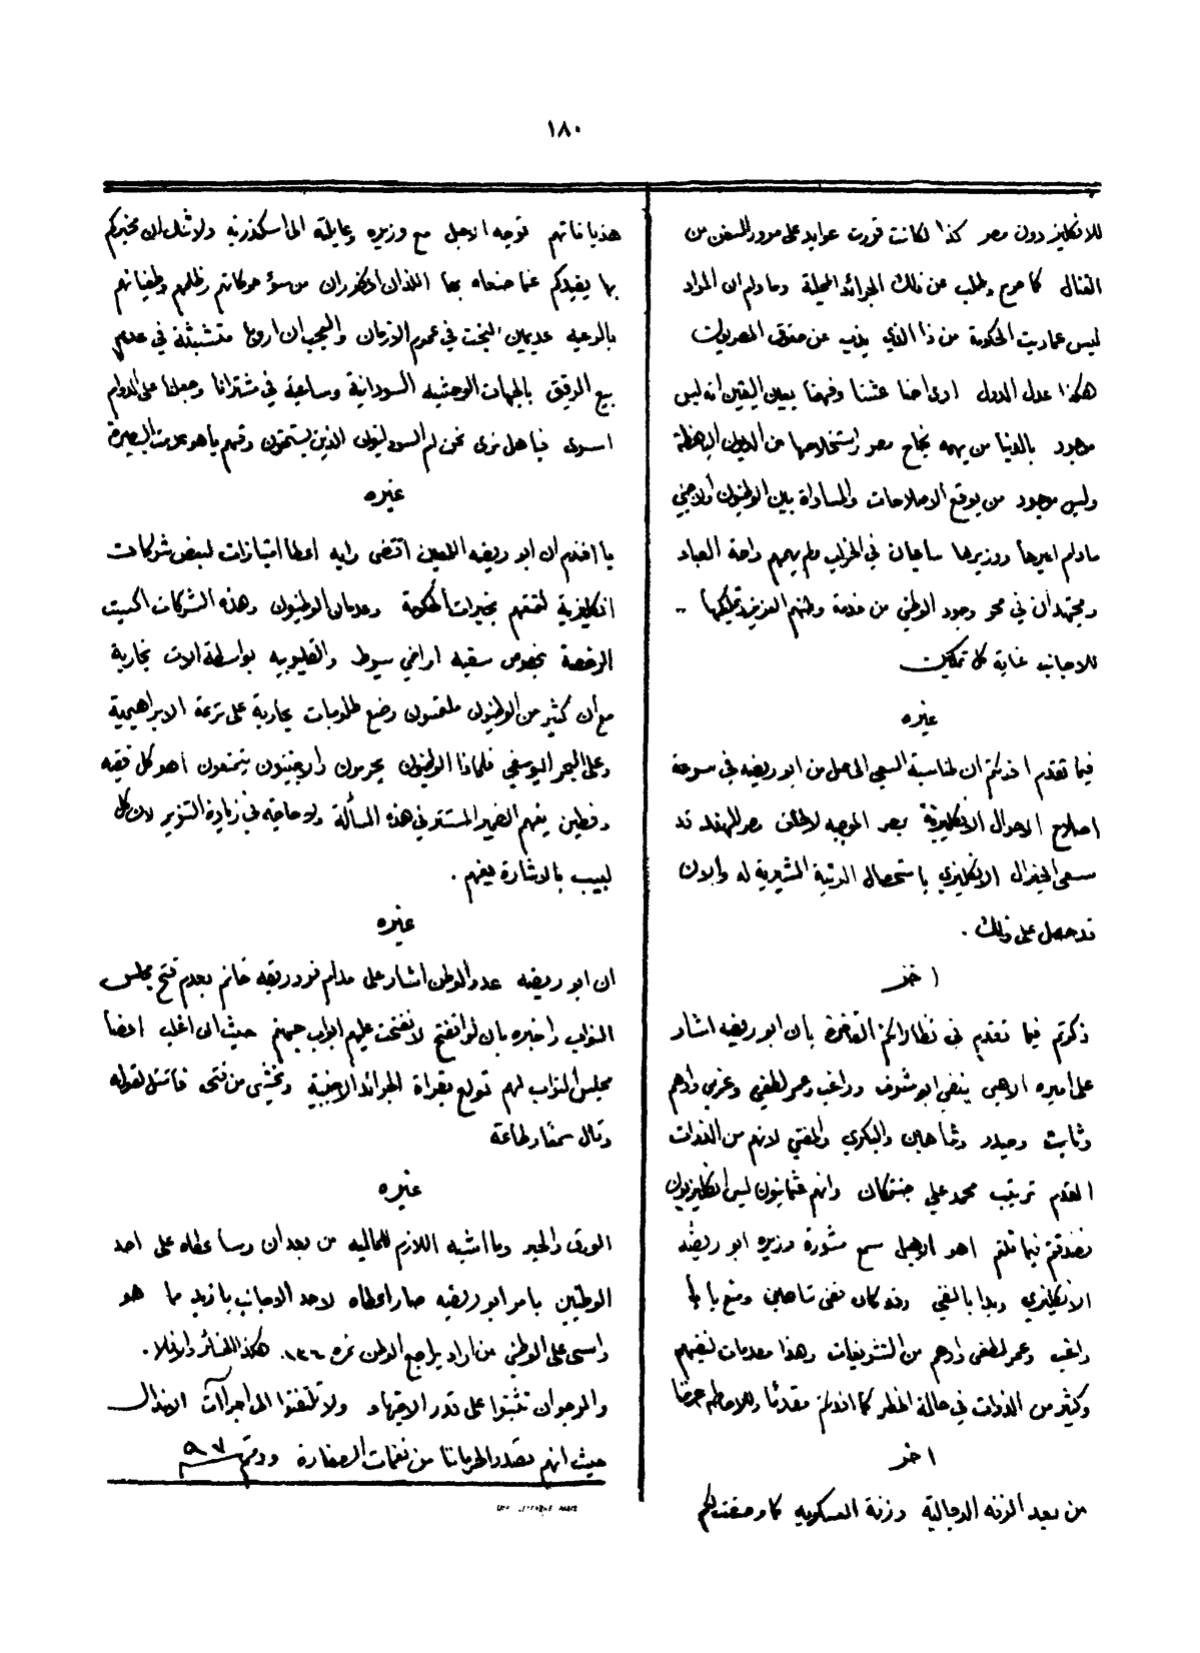 ١٨٠
للانكليز دون مصر كذا لكانت قررت عوايد على مرور السفن من
القنال كما صرح وطلب من ذلك الجرائد المحلية وما دام ان المواد
ليس عماريت الحكومة من ذا الذي يذب عن حقوق المصريين
هكذا عدل الدول ادى احنا عشنا وفهمنا بعين اليقين انه ليس
موجود بالدنيا من يهمه نجاح مصر واستخلاصها من الديون الباهظة
وليس موجود من يوقع الاصلاحات والمساواة بين الوطنيون والاجنبي
مادام اميرها ووزيرها ساعيان في الخراب ولم يهمهم راحة العباد
ومجتهدان في محو وجود الوطني من خدمة وطنهم العزيز وتمليكها ..
للاجانب غاية كل تمكين
غيره
فيما تقدم اخبرتكم ان لمناسبة السعي الحاصل من ابو ريضه في سرعة
اصلاح الاحوال الانكليزية بمصر الموجبه لالحاق مصر للهند قد
سعى الجنرال الانكليزي باستحصال الرتبة المشيرية له والان
قد حصل على ذلك .
اخر
ذكرتم فيما تقدم في نظاراتكم الغراء بان ابو ريضه اشار
على اميره الاهبل بنفي ابو شنوف وراغب وعمر لطفي وغربي وادهم
وثابت وحيدر وشاهين والبكري والمفتي لانهم من الذوات
القدم تربيت محمد علي جنتمكان وانهم عثمانيون ليس انكليزيون
فصدقتم فيما قلتم اهو الاهبل سمع مشورة وزيره ابو ريضه
الانكليزي وبدا بالنفي وقد كان نفى شاهين ومنع
راغب وعمر لطفي وادهم من التشريفات وهذا مقدمات لنفيهم
وكثير من الذوات في حالة الخطر كما انذرتكم مقدما وللاحاطه عرضنا
اخر
من بعد الرفته الدجالية ورفته العسكريه كما وصفت لكم
هذياناتهم توجه الاهبل مع وزيره وعايلته الى اسكندرية ولا شك ان مخبركم
بها يفيدكم عما صنعاه بها اللذان المذكوران من سوء حركاتهم وظلمهم وطغيانهم
بالرعيه عديمين البخت في عموم الازمان والعجب ان اروبا متشبثة في عدم
بيع الرقيق بالجهات الوحشيه السودانية وساعية في مشترانا وجعلنا على الدوام
اسرى فيا هل ترى نحن ام السودانيون الذين يستحقون وقهم ياهو عدمت البصيرة
غيره
يا افندم ان ابو ريضه اللعين اقتضى رايه اعطا امتيازات لبعض شركات
انكليزية لتمتعهم بخيرات الحكومة وحرمان الوطنيون وهذه الشركات اكتسبت
الرخصة بخصوص سقيه اراضي سيوط والقليوبيه بواسطة الات بخارية
مع أن كثير من الوطنيون ملتمسون وضع طلومبات بخارية على ترعة الابراهيمية
وعلى البحر اليوسفي فلماذا الوطنيون يحرمون والاجنبيون يتمتعون اهو كل فقيه
وفطين يفهم الضمير المستتر في هذه المسألة ولا حاجة في زيادة التزوير لان كل
لبيب بالاشارة يفهم .
غيره
ان ابو ريضه عدو الوطن اشار على مدام فردريقه خانم بعدم فتح مجلس
النواب واخبره بان لو انفتح لانفتحت عليهم ابواب جهنم حيث ان اغلب اعضا
مجلس النواب لهم تولع بقراة الجرائد الاجنبية ونخشى من فتحه فامتثل لقوله
وقال سمعا وطاعة
غيره
الورق والحبر وما اشبه اللازم للماليه من بعد ان رسا عطاه على احد
الوطنين بامر ابو ريضه صار اعطاه لاحد الاجانب بازيد مما هو
راسى على الوطني من اراد يراجع الوطن نمره ١٢٦. هكذا الخسائر والا فلا .
والرجو ان تثبتوا على قدر الاجتهاد ولا تلتفتوا الى اجراآت الانذال
حيث انهم قصدهم احرماننا من نغمات الصفارة ودمتم ٩٧